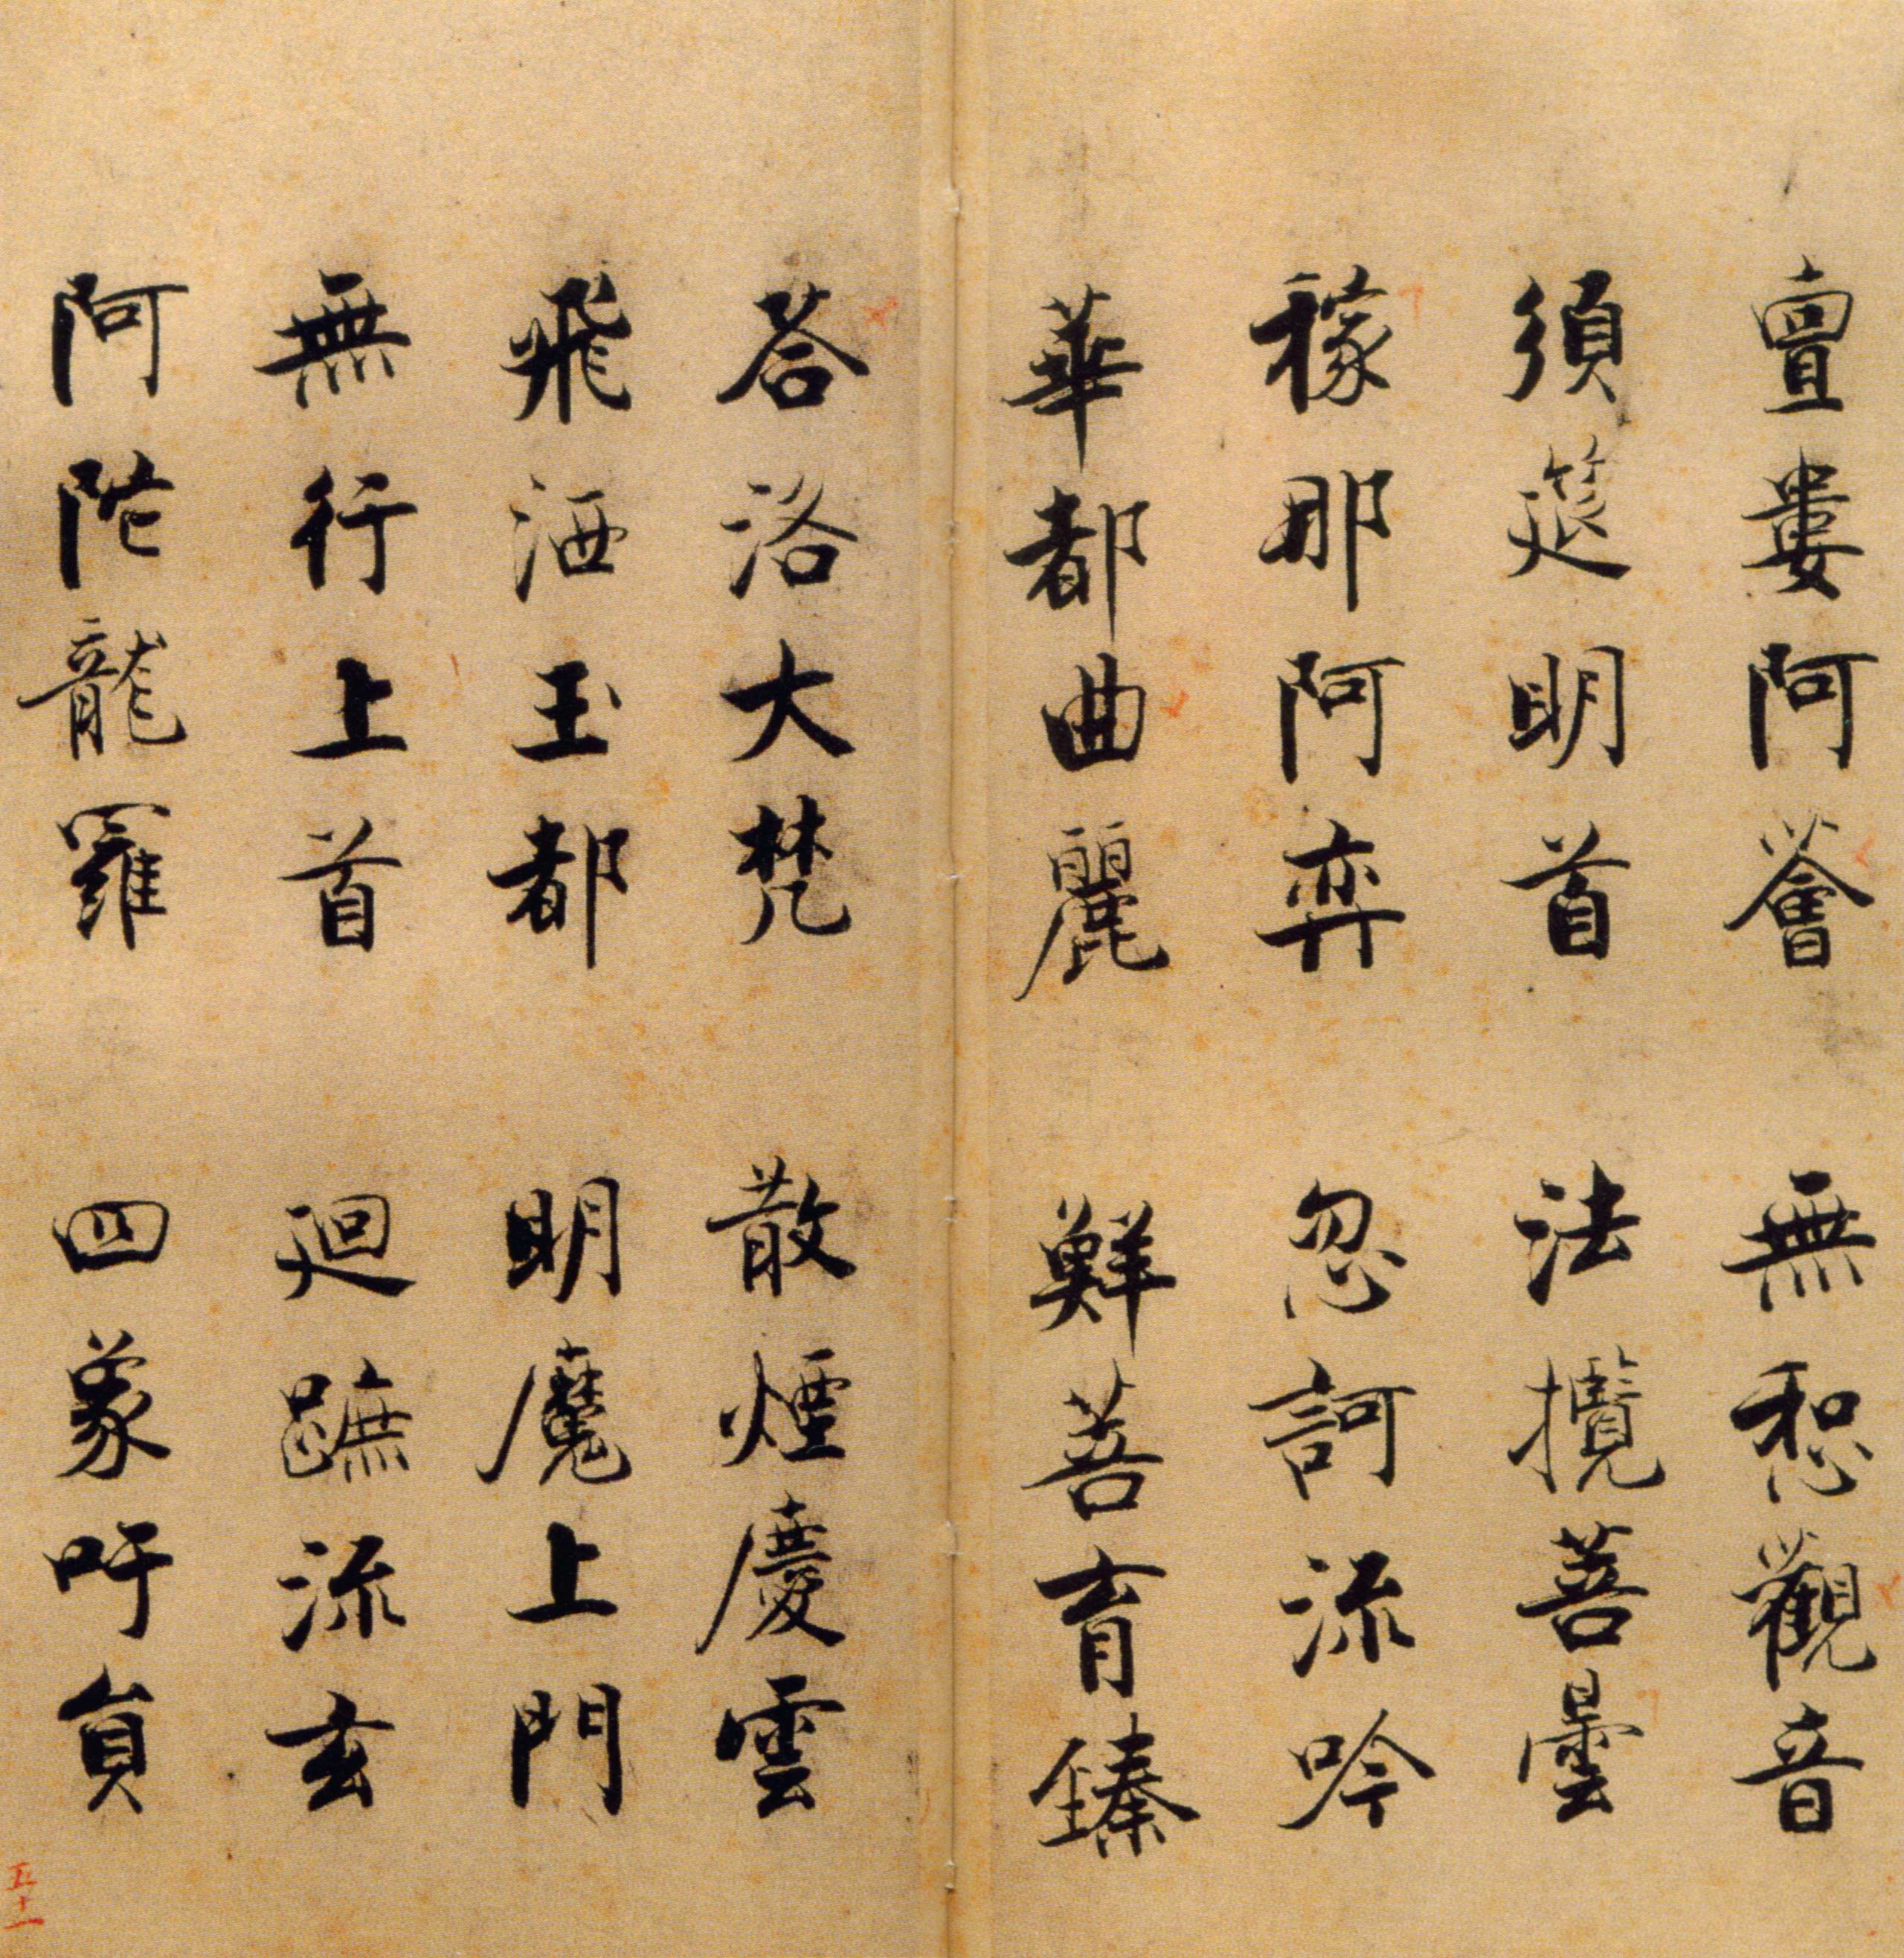 亶婁阿薈　無惒觀音
須莚明首　法攬菩曇
稼那阿弈　忽訶流吟
華都曲麗　鮮菩育臻
荅洛大梵　散煙慶雲
飛洒玉都　明魔上門
無行上首　迴蹠流玄
阿陁龍羅　四象吁員
五十一